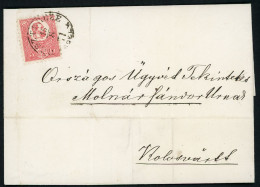 Országos Ügyvéd Tekintetes
Molnár Sándor Urnak
Kolosvártt